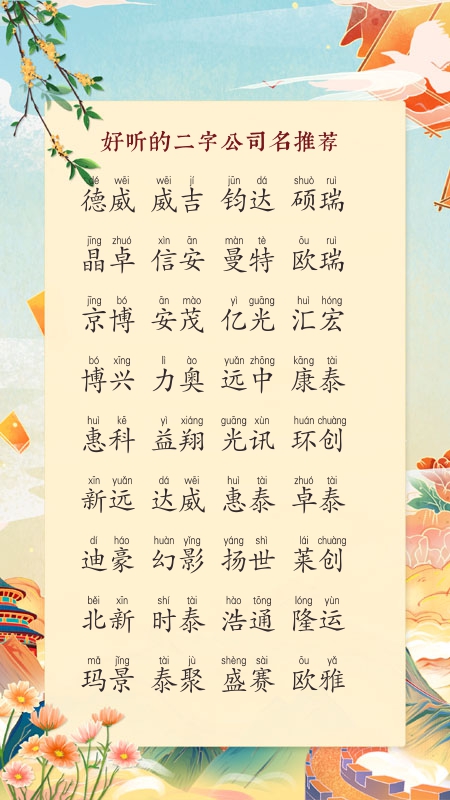 好听的二字公司名推荐
dé wēi wēi jí jūn dá shuò ruì
德威 威吉 钧达 硕瑞
jīng zhuó xìn ān màn tè ōu ruì
晶卓 信安 曼特 欧瑞
jīng bó ān mào yì guāng huì hóng
京博 安茂 亿光 汇宏
bó xīng lì ào yuǎn zhōng kāng tài
博兴 力奥 远中 康泰
huì kē yì xiáng guāng xùn huán chuàng
惠科 益翔 光讯 环创
xīn yuǎn dá wēi huì tài zhuó tài
新远 达威 惠泰 卓泰
dí háo huàn yǐng yáng shì lái chuàng
迪豪 幻影 扬世 莱创
běi xīn shí tài hào tōng lóng yùn
北新 时泰 浩通 隆运
mǎ jǐng tài jù shèng sài ōu yǎ
玛景 泰聚 盛赛 欧雅